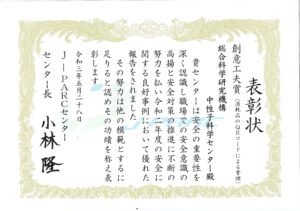 表彰状
創意工夫賞(消耗品のQRコードによる管理)
総合科学研究機構
中性子科学センター殿
貴センターは安全の重要性を
深く認識し職場での安全意識の
高揚と安全対策の推進に不断の
努力を払い令和二年度の安全に
関する良好事例において優れた
報告をされました
その努力は他の模範とするに
足りると認めその功績を称え表
彰します
令和三年五月二十八日
J-PARCセンター
センター長 小林隆